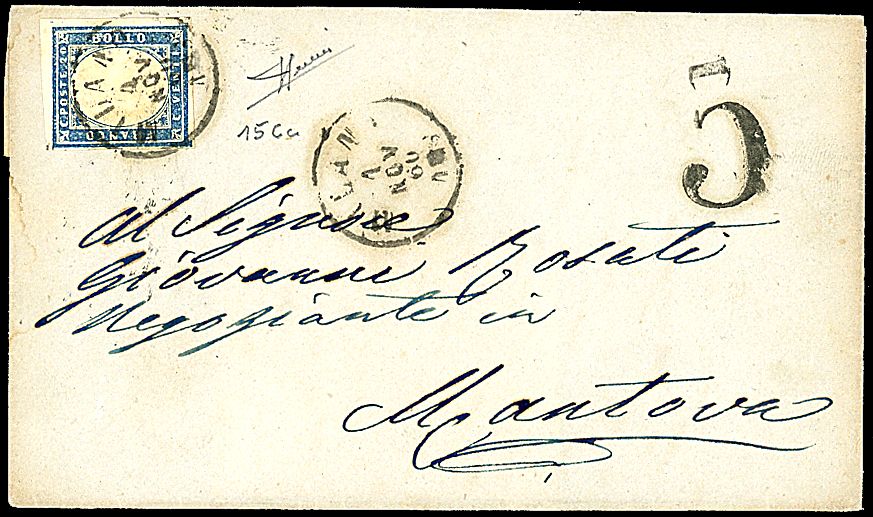 BOLLO
C. POSTE 20
C. VENTI
FRANCO
MILANO
4
NOV
60
15Ca
MILANO
4
NOV
60
5
Al Signore
Giovanni Rosati
Negoziante in
Mantova